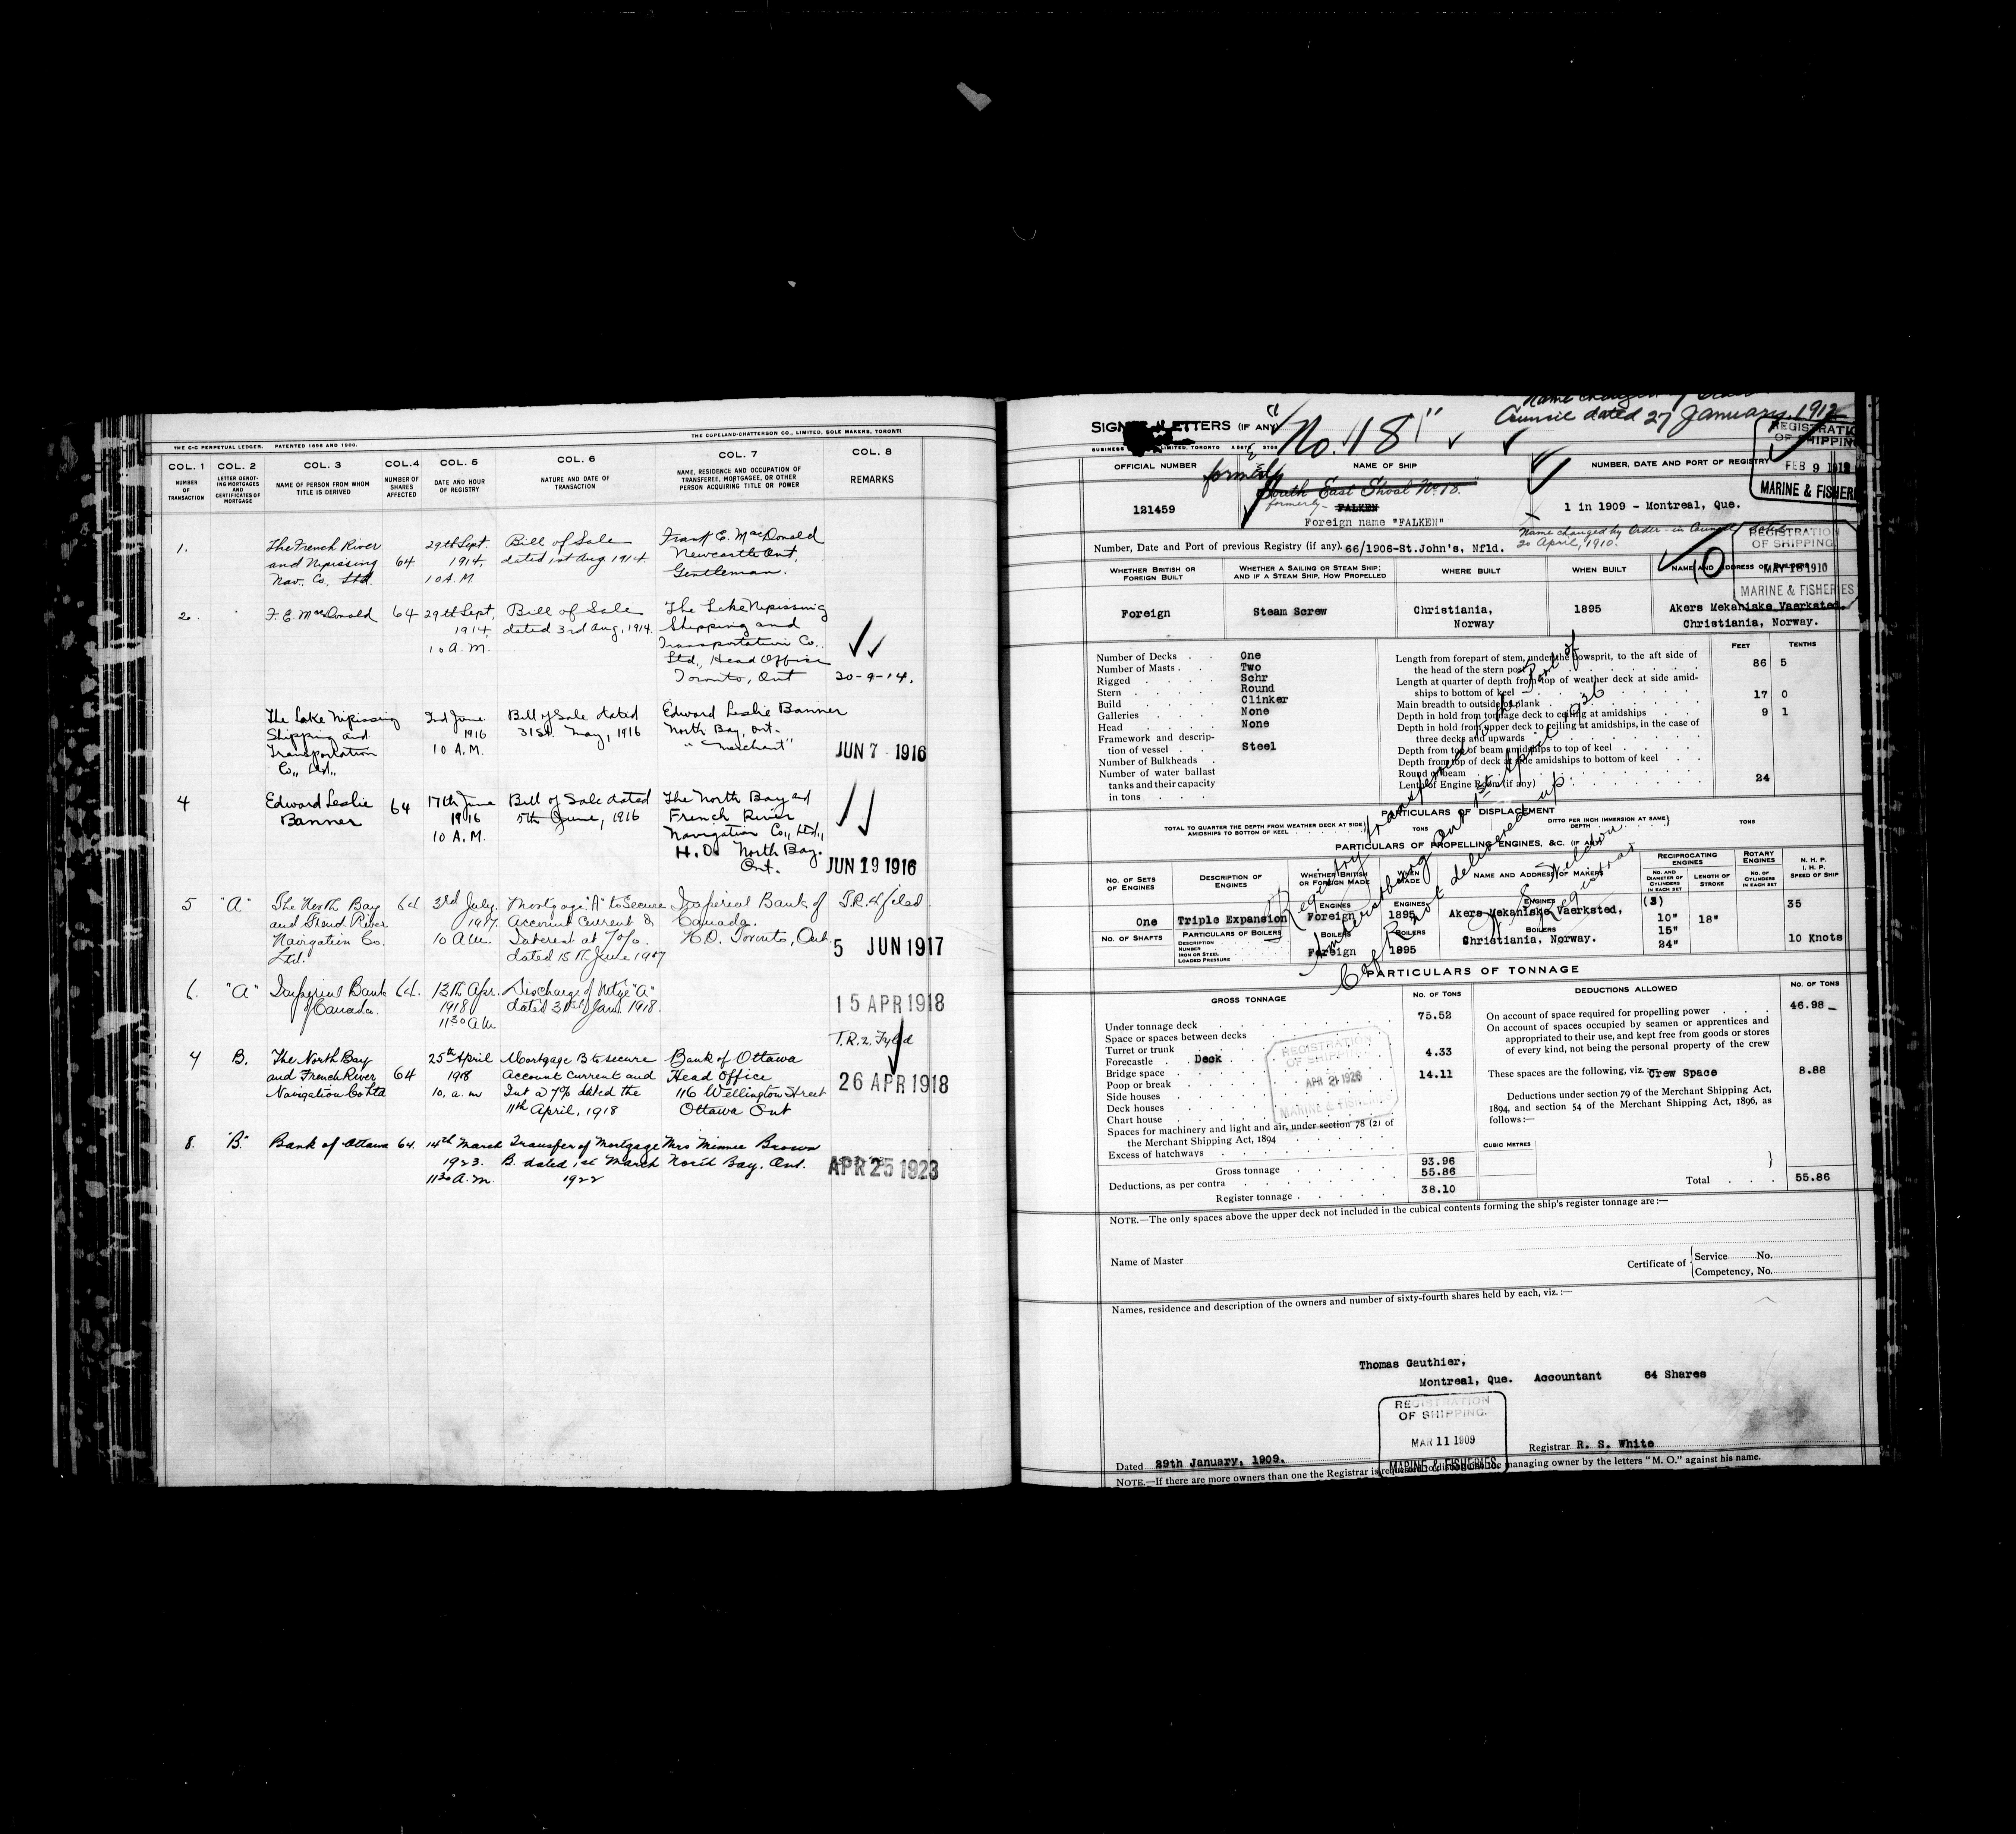 THE C-C PERPETUAL LEDGER. PATENTED 1896 AND 1900.
THE COPELAND-CHATTERSON CO., LIMITED, SOLE MAKERS, TORONTO
COL. 1 COL. 2 COL. 3 COL. 4 COL. 5 COL. 6 COL. 7 COL. 8
NUMBER OF TRANSACTION
LETTER DENOTING MORTGAGES AND CERTIFICATES OF MORTGAGE
NAME OF PERSON FROM WHOM TITLE IS DERIVED
NUMBER OF SHARES AFFECTED
DATE AND HOUR OF REGISTRY
NATURE AND DATE OF TRANSACTION
NAME, RESIDENCE AND OCCUPATION OF TRANSFEREE, MORTGAGEE, OR OTHER PERSON ACQUIRING TITLE OR POWER
REMARKS
1. The French River 29th Sept. Bill of Sale Frank E. MacDonald
and Nipissing 64 1914, dated 1st Aug 1914. Newcastle Ont,
Nav. Co, Ltd. 10 A.M. Gentleman.
2. F. E. MacDonald 64 29th Sept, Bill of Sale The Lake Nipissing
1914, dated 3rd Aug, 1914. Shipping and
10 A.M. Transportation Co.,
Ltd., Head Office
Toronto, Ont 20-9-14.
The Lake Nipissing 2nd June Bill of Sale dated Edward Leslie Banner
Shipping and 1916 31st. May, 1916 North Bay, Ont.
Transportation 10 A.M. "Merchant" JUN 7 - 1916
Co., Ltd.,
4 Edward Leslie 64 17th June Bill of Sale dated The North Bay and
Banner 1916 5th June, 1916 French River
10 A.M. Navigation Co., Ltd.,
H.O. North Bay.
Ont. JUN 19 1916
5 "A" The North Bay 64 3rd July. Mortgage "A" to Secure Imperial Bank of T.R.2 filed.
and French River 1917. Account Current & Canada.
Navigation Co. 10 A.M. Interest at 7%. H.O. Toronto, Ont. 5 JUN 1917
Ltd. dated 15th June 1917
6. "A" Imperial Bank 64. 13th Apr. Discharge of Mtge "A"
of Canada. 1918 dated 31st Jan. 1918. 15 APR 1918
11 30 A.M.
T.R.2. Fyled
7 B. The North Bay 25th April Mortgage B to secure Bank of Ottawa
and French River 64 1918 Account Current and Head Office 26 APR 1918
Navigation Co Ltd 10, a. m Int @ 7% dated the 116 Wellington Street
11th April, 1918 Ottawa Ont
8. "B" Bank of Ottawa 64. 14th March Transfer of Mortgage Mrs Minnie Brown
1923. B. dated 1st March North Bay, Ont. APR 25 1923
11 30 A.M. 1922
Name changed
Council dated 27 January, 1912
LETTERS (IF ANY) "No. 18"
REGISTRATION OF SHIPPING
FEB 9 1912
MARINE & FISHERIES
OFFICIAL NUMBER NAME OF SHIP NUMBER, DATE AND PORT OF REGISTRY
formerly
South East Shoal No. 18.
121459 formerly - FALKEN 1 in 1909 - Montreal, Que.
Foreign name "FALKEN"
Name changed by Order-in Council dated
20 April, 1910.
REGISTRATION OF SHIPPING
MAY 18 1910
MARINE & FISHERIES
Number, Date and Port of previous Registry (if any). 66/1906-St.John's, Nfld.
WHETHER BRITISH OR FOREIGN BUILT
WHETHER A SAILING OR STEAM SHIP; AND IF A STEAM SHIP, HOW PROPELLED
WHERE BUILT WHEN BUILT NAME AND ADDRESS OF BUILDERS
Foreign Steam Screw Christiania, 1895 Akers Mekaniske Vaerksted.
Norway Christiania, Norway.
FEET TENTHS
Number of Decks One
Number of Masts Two
Rigged Schr
Stern Round
Build Clinker
Galleries None
Head None
Framework and description of vessel Steel
Number of Bulkheads
Number of water ballast tanks and their capacity in tons
Length from forepart of stem, under the bowsprit, to the aft side of
the head of the stern post 86 5
Length at quarter of depth from top of weather deck at side amidships to bottom of keel
Main breadth to outside of plank 17 0
Depth in hold from tonnage deck to ceiling at amidships 9 1
Depth in hold from upper deck to ceiling at amidships, in the case of
three decks and upwards
Depth from top of beam amidships to top of keel
Depth from top of deck at side amidships to bottom of keel
Round of beam
Length of Engine Room (if any) 24
Registry transferred to the Port of
Amherstburg Ont 1st April 1926
C of R not delivered up.
Registrar
PARTICULARS OF DISPLACEMENT
TOTAL TO QUARTER THE DEPTH FROM WEATHER DECK AT SIDE AMIDSHIPS TO BOTTOM OF KEEL TONS
DITTO PER INCH IMMERSION AT SAME DEPTH TONS
PARTICULARS OF PROPELLING ENGINES, &C. (IF ANY)
NO. OF SETS OF ENGINES
DESCRIPTION OF ENGINES
WHETHER BRITISH OR FOREIGN MADE
WHEN MADE
NAME AND ADDRESS OF MAKERS
RECIPROCATING ENGINES
NO. AND DIAMETER OF CYLINDERS IN EACH SET
LENGTH OF STROKE
ROTARY ENGINES
NO. OF CYLINDERS IN EACH SET
N. H. P.
I. H. P.
SPEED OF SHIP
ENGINES ENGINES ENGINES (3) 35
One Triple Expansion Foreign 1895 Akers Mekaniske Vaerksted, 10" 18"
15"
NO. OF SHAFTS PARTICULARS OF BOILERS BOILERS BOILERS BOILERS
DESCRIPTION
NUMBER
IRON OR STEEL
LOADED PRESSURE
Foreign 1895 Christiania, Norway. 24" 10 Knots
PARTICULARS OF TONNAGE
GROSS TONNAGE NO. OF TONS DEDUCTIONS ALLOWED NO. OF TONS
Under tonnage deck 75.52
Space or spaces between decks
Turret or trunk
Forecastle Deck 4.33
Bridge space
Poop or break 14.11
Side houses
Deck houses
Chart house
Spaces for machinery and light and air, under section 78 (2) of
the Merchant Shipping Act, 1894
Excess of hatchways
Gross tonnage 93.96
Deductions, as per contra 55.86
Register tonnage 38.10
REGISTRATION OF SHIPPING
APR 21 1926
MARINE & FISHERIES
On account of space required for propelling power 46.98
On account of spaces occupied by seamen or apprentices and
appropriated to their use, and kept free from goods or stores
of every kind, not being the personal property of the crew
These spaces are the following, viz.:— Crew Space 8.88
Deductions under section 79 of the Merchant Shipping Act,
1894, and section 54 of the Merchant Shipping Act, 1896, as
follows:—
CUBIC METRES
Total 55.86
NOTE.—The only spaces above the upper deck not included in the cubical contents forming the ship's register tonnage are:—
Name of Master
Certificate of Service No.
Competency, No.
Names, residence and description of the owners and number of sixty-fourth shares held by each, viz.:—
Thomas Gauthier,
Montreal, Que. Accountant 64 Shares
REGISTRATION OF SHIPPING.
MAR 11 1909
MARINE & FISHERIES
Dated 29th January, 1909. Registrar R. S. White
NOTE.—If there are more owners than one the Registrar is required to distinguish the managing owner by the letters "M. O." against his name.